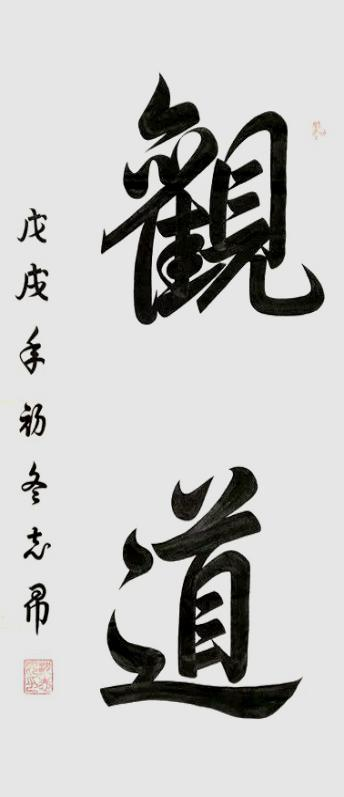 觀道
戊戌年初冬志昂